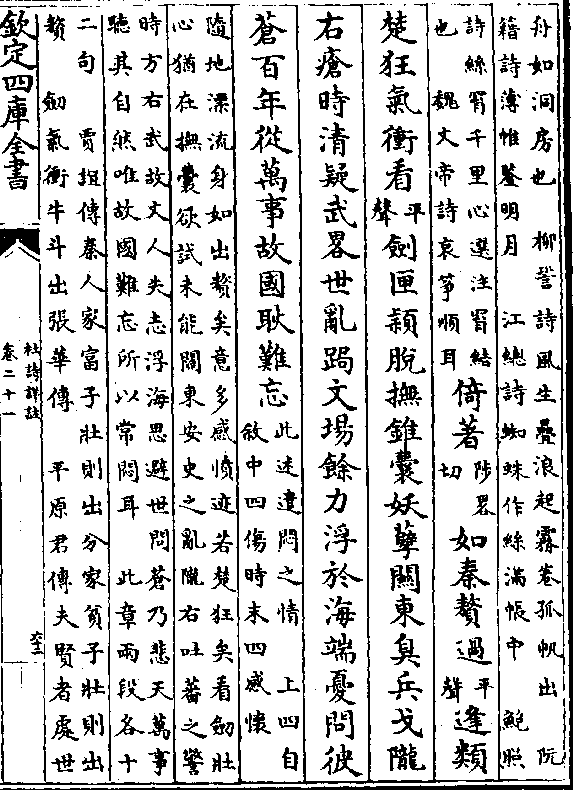 舟如洞房也　柳䛒詩風生疊浪起霧卷孤帆出　阮
籍詩薄帷鑒明月　江總詩蜘蛛作絲滿帳中　鮑照
詩絲罥千里心選注罥結
也　魏文帝詩哀箏順耳
倚著陟畧切如秦贅過平聲逢類
楚狂氣衝看平聲劍匣穎脫撫錐囊妖孽關東臭兵戈隴
右瘡時清疑武畧世亂跼文場餘力浮於海端憂問彼
蒼百年從萬事故國耿難忘
此述遣悶之情　上四自
敘中四傷時末四感懷
隨地漂流身如出贅矣意多感憤迹若楚狂矣看劒壯
心猶在撫囊欲試未能關東安史之亂隴右吐蕃之警
時方右武故文人失志浮海思避世問蒼乃悲天萬事
聽其自然唯故國難忘所以常悶耳　此章兩段各十
二句　賈誼傳秦人家富子壯則出分家貧子壯則出
贅　劒氣衝牛斗出張華傳　平原君傳夫賢者處世
欽定四庫全書
杜詩詳註
卷二十一